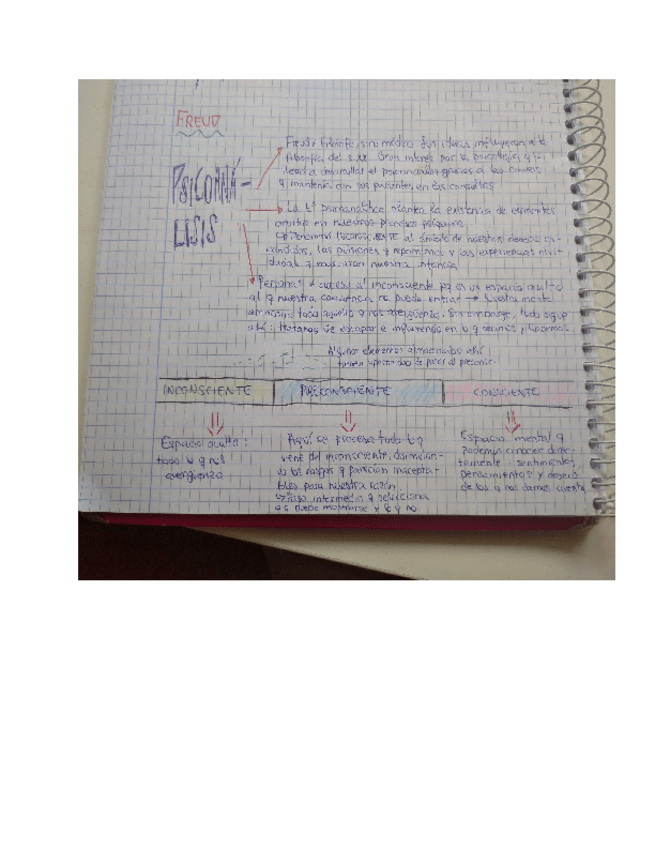 FREUD
PSICOANÁ-
LISIS
Freud: filósofo, sino médico. Sus ideas influyeron a la
filosofía del s.XX. Gran interés por la
desarrollar el psicoanálisis gracias a las
q mantenía con sus pacientes en las consultas
La tª psicoanalítica plantea la existencia de elementos
en nuestros procesos psíquicos
INCONSCIENTE al ámbito de nuestros deseos es-
condidos, las pulsiones y represiones y las experiencias
q marcaron nuestra infancia
acceso al inconsciente pq es un espacio oculto
al q nuestra consciencia no puede entrar → Nuestra mente
todo aquello q nos avergüenza. Sin embargo, todo sigue
ahí: tratando de escapar e influyendo en lo q
Algunos elementos almacenados ahí
de pasar al preconsc.
INCONSCIENTE PRECONSCIENTE CONSCIENTE
Espacio oculto:
todo lo q nos
avergüenza
Aquí se procesa todo lo q
viene del inconsciente,
los rasgos q parecían inacepta-
bles para nuestra razón
↳ Paso intermedio q selecciona
lo q puede mostrarse y lo q no
Espacio mental q
podemos conocer direc-
tamente: sentimientos,
pensamientos y deseos
de los q nos damos cuenta